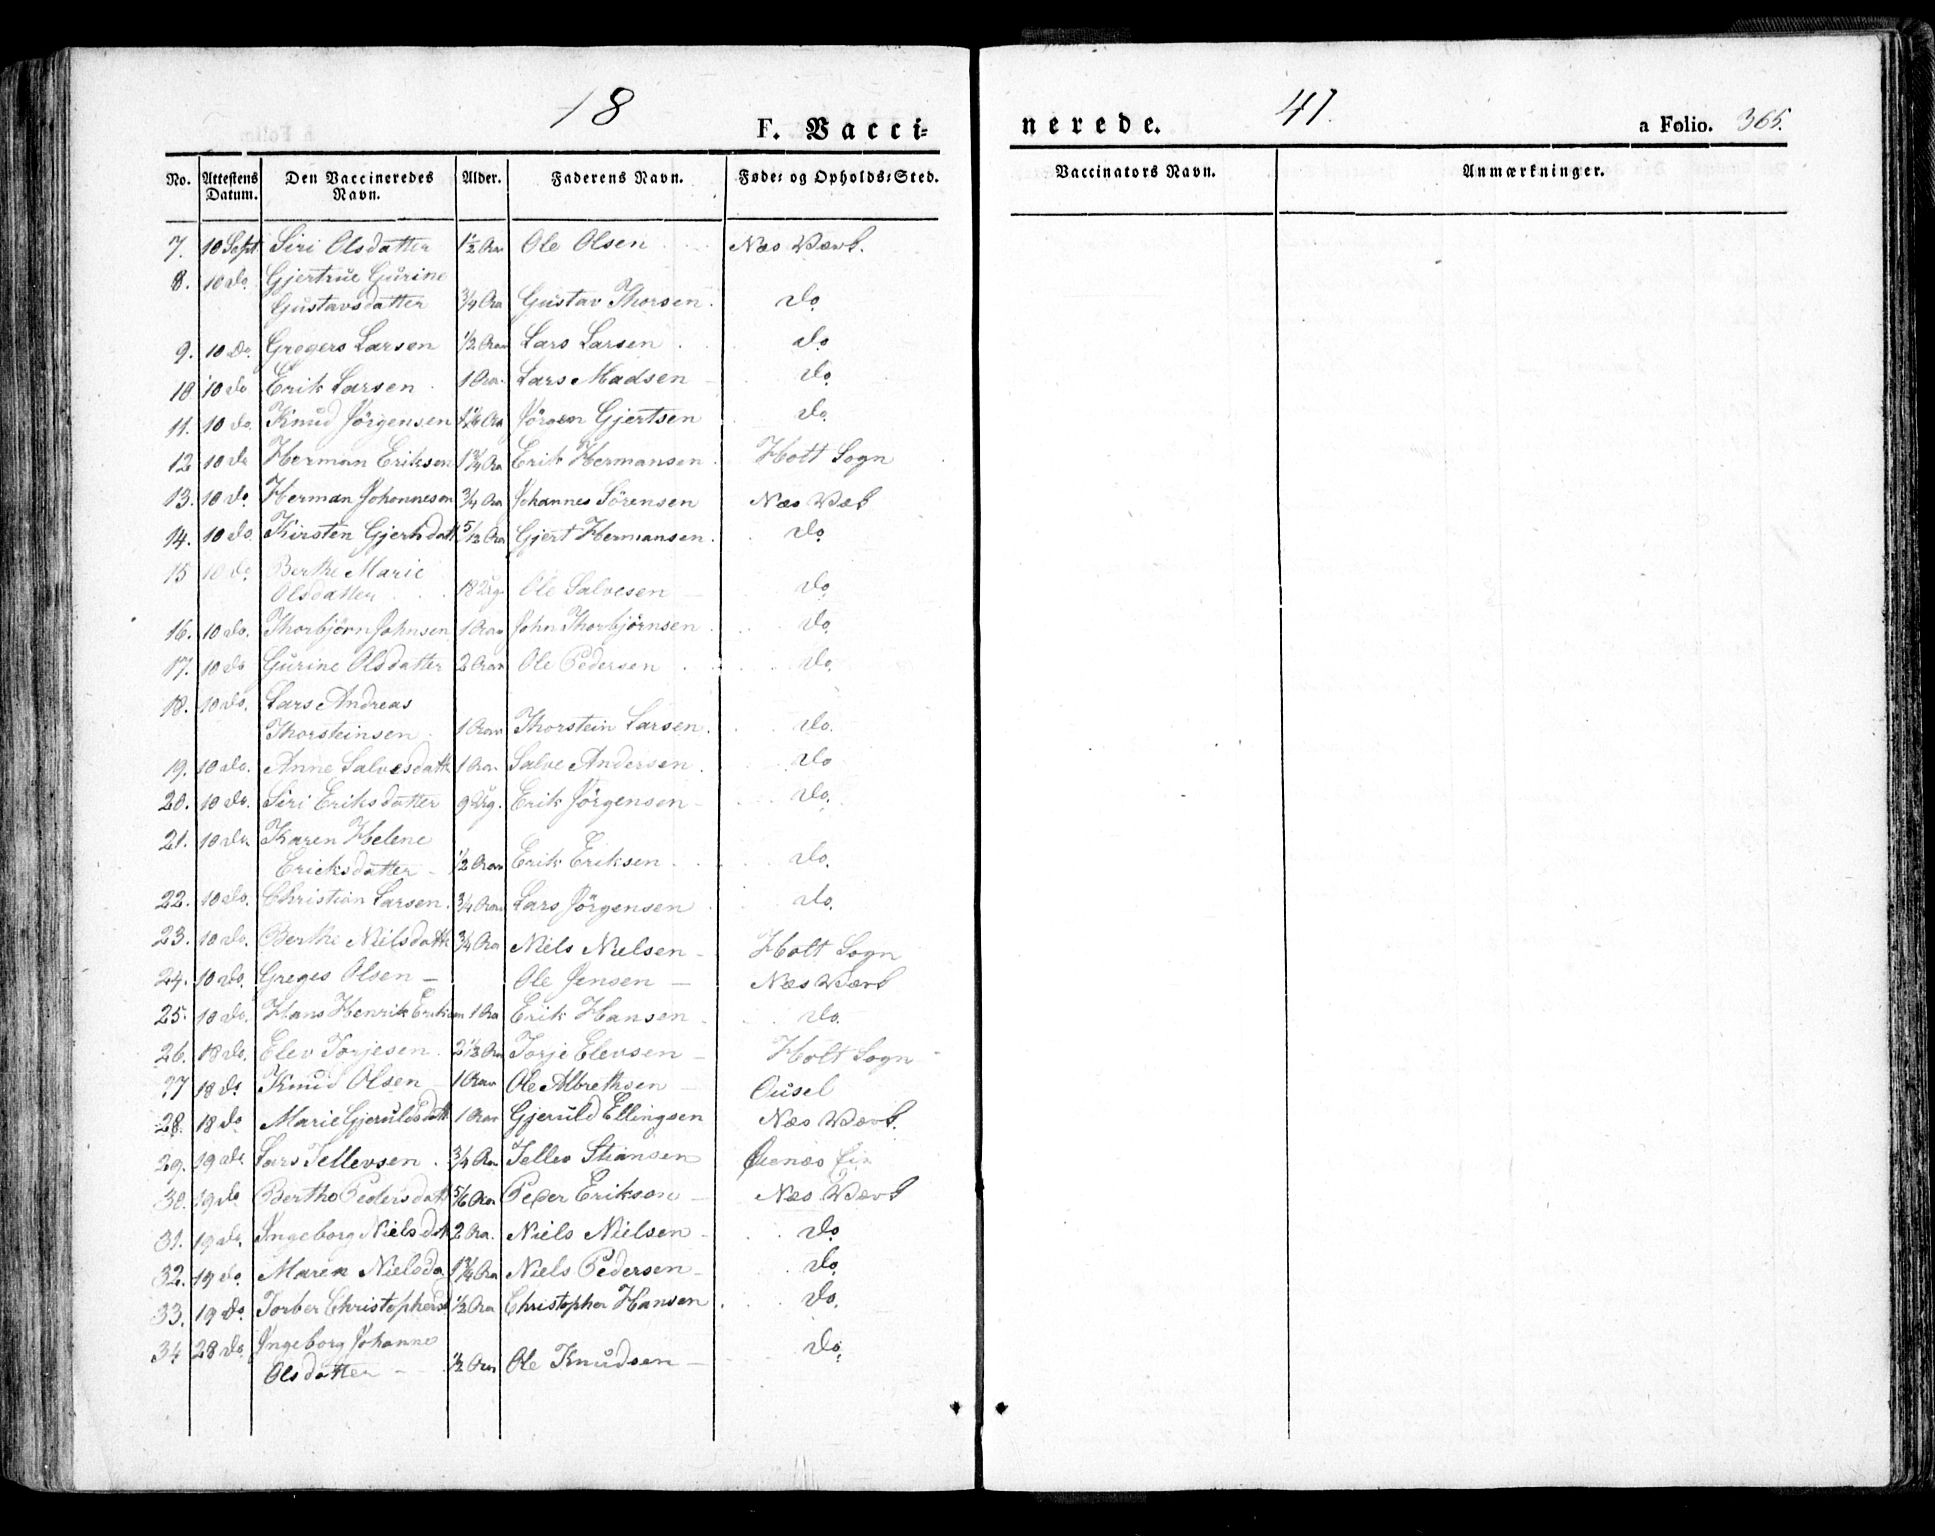 18 41.
F. Vacci- nerede. a Folio. 365.
No. Attestens Datum. Den Vaccineredes Navn. Alder. Faderens Navn. Føde- og Opholds-Sted. Vaccinators Navn. Anmærkninger.
7. 10 Sept Siri Olsdatter 1½ Aar Ole Olsen Næs Værk.
8. 10 do. Gjertrue Gurine
Gustavsdatter ¾ Aar Gustav Thorsen. do
9. 10 do. Gregers Larsen ½ Aar Lars Larsen do
10 10 do Erik Larsen 1 Aar. Lars Madsen do
11. 10 do. Knud Jörgensen 1¼ Aar Jörgen Gjertsen do
12 10 do Herman Eriksen 1¾ Aar Erik Hermansen Holt Sogn
13. 10 do Herman Johannesen ¾ Aar Johannes Sörensen Næs Væk
14. 10 do Kirsten Gjertsdatt 5/12 Aar Gjert Hermansen. do
15 10 do Berthe Marie
Olsdatter 18 Ug Ole Salvesen do
16. 10 do. Thorbjörn Johnsen 1 Aar John Thorbjörnsen do
17. 10 do Gurine Olsdatter 2 Aar Ole Pedersen do
18. 10 do. Lars Andreas
Thorsteinsen 1 Aar Thorstein Larsen. do.
19. 10 do. Anne Salvesdatt 1 Aar Salve Andersen do
20. 10 do. Siri Eriksdatter 9 Ug. Erik Jörgensen do
21. 10 do. Karen Helene
Ericksdatter ½ Aar Erik Eriksen do.
22. 10 do. Christian Larsen ¾ Aar Lars Jörgensen do.
23. 10 do. Berthe Nilsdatt ¾ Aar Niels Nielsen Holt Sogn
24. 10 do. Greges Olsen Ole Jensen Næs Værk
25. 10 do. Hans Henrik Eriksen 1 Aar Erik Hansen do.
26. 18 do. Elev Torjesen. 2½ Aar Torje Elevsen Holt Sogn
27 18 do Knud Olsen 1 Aar Ole Albretsen Ousel
28. 18 do Marie Gjeruldsdatt 1 Aar Gjeruld Ellingsen Næs Værk.
29. 19 do Lars Tellevsen. ¾ Aar Tellev Stiansen
30. 19 do Berthe Pedersdatt 5/6 Aar Peder Eriksen Næs Værk
31. 19 do. Ingeborg Nielsdat 2 Aar. Niels Nielsen do
32. 19 do Maren Nielsda 1¾ Aar Niels Pedersen do
33. 19 do Torber Christophers ½ Aar Christopher Hansen do.
34 28 do. Ingeborg Johanne
Olsdatter ½ Aar Ole Knudsen do.